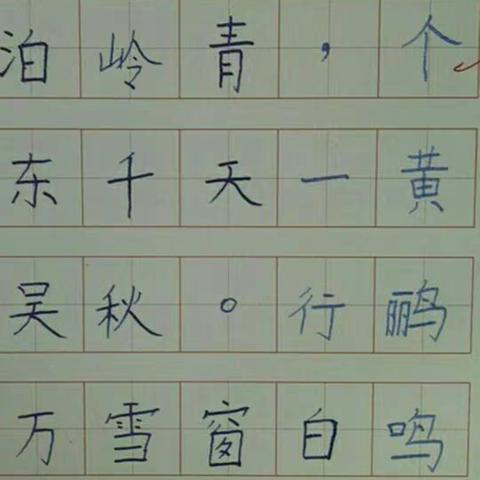 个黄鹂鸣
，一行白
青天。窗
岭千秋雪
泊东吴万